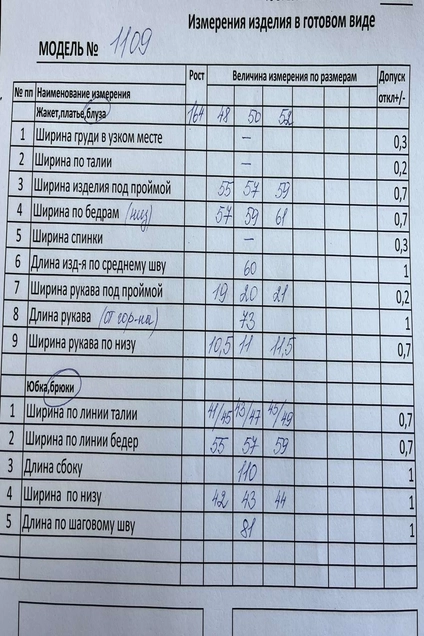 Измерения изделия в готовом виде
МОДЕЛЬ № 1109
№ пп Наименование измерения Рост Величина измерения по размерам Допуск откл+/-
Жакет,платье,блуза 164 48 50 52
1 Ширина груди в узком месте — 0,3
2 Ширина по талии — 0,2
3 Ширина изделия под проймой 55 57 59 0,7
4 Ширина по бедрам (низ) 57 59 61 0,7
5 Ширина спинки — 0,3
6 Длина изд-я по среднему шву 60 1
7 Ширина рукава под проймой 19 20 21 0,2
8 Длина рукава (от гор-на) 73 1
9 Ширина рукава по низу 10,5 11 11,5 0,7
Юбка,брюки
1 Ширина по линии талии 41/45 43/47 45/49 0,7
2 Ширина по линии бедер 55 57 59 0,7
3 Длина сбоку 110 1
4 Ширина по низу 42 43 44 1
5 Длина по шаговому шву 81 1